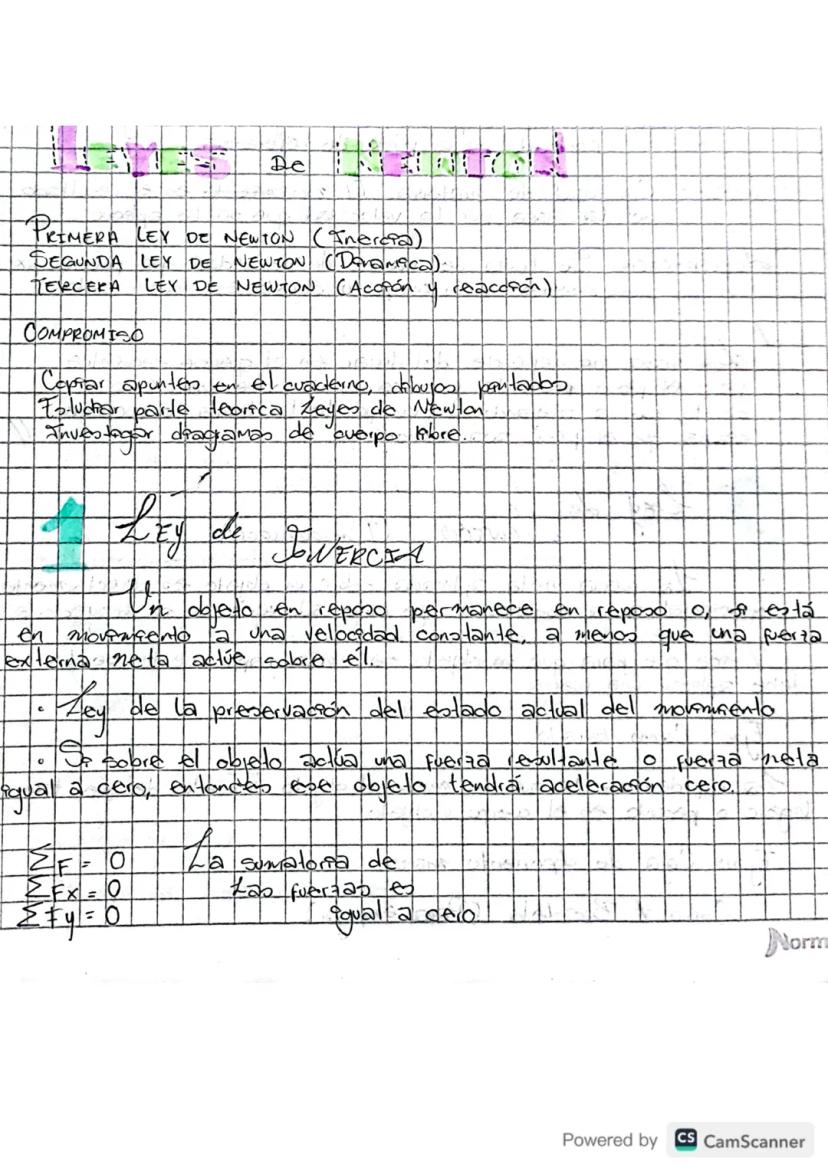 LEYES De NEWTON
PRIMERA LEY DE NEWTON (Inercia)
SEGUNDA LEY DE NEWTON (Dinamica).
TERCERA LEY DE NEWTON (Acción y reacción)
COMPROMISO
Copiar apuntes en el cuaderno, dibujos pintados.
Estudiar parte teorica Leyes de Newton
Investigar diagramas de cuerpo libre.
1 LEy de INERCIA
Un objeto en reposo permanece en reposo o, si está
en movimiento a una velocidad constante, a menos que una fuerza
externa neta actúe sobre él.
• Ley de la preservación del estado actual del movimiento
• Si sobre el objeto actúa una fuerza resultante o fuerza neta
igual a cero, entonces ese objeto tendrá aceleración cero.
ΣF = 0 La sumatoria de
ΣFx = 0 Las fuerzas es
ΣFy = 0 igual a cero
Norm
Powered by CS CamScanner